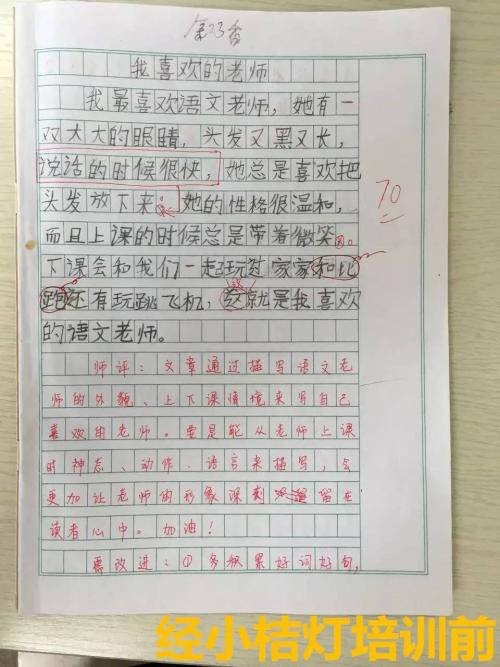 我喜欢的老师
我最喜欢语文老师，她有一
双大大的眼睛，头发又黑又长，
说话的时候很快，她总是喜欢把
头发放下来。她的性格很温和，
而且上课的时候总是带着微笑。
下课会和我们一起玩过家家和比
跑还有玩跳飞机，这就是我喜欢
的语文老师。
70
师评：文章通过描写语文老
师的外貌、上下课情境来写自己
喜欢的老师。要是能从老师上课
时神态、动作、语言来描写，会
更加让老师的形象深刻留在
读者心中。加油！
需改进：①多积累好词好句，
经小桔灯培训前